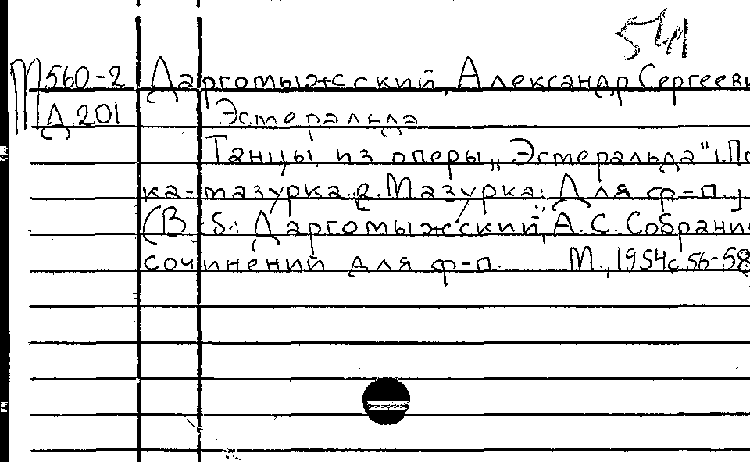 541
М560-2 Даргомыжский, Александр Сергееви
Д 201 Эсмеральда
Танцы из оперы „Эсмеральда" 1. По
ка-мазурка. 2. Мазурка: Для ф-п.
(В б: Даргомыжский, А. С. Собрание
сочинений для ф-п. М., 1954 с 56-58